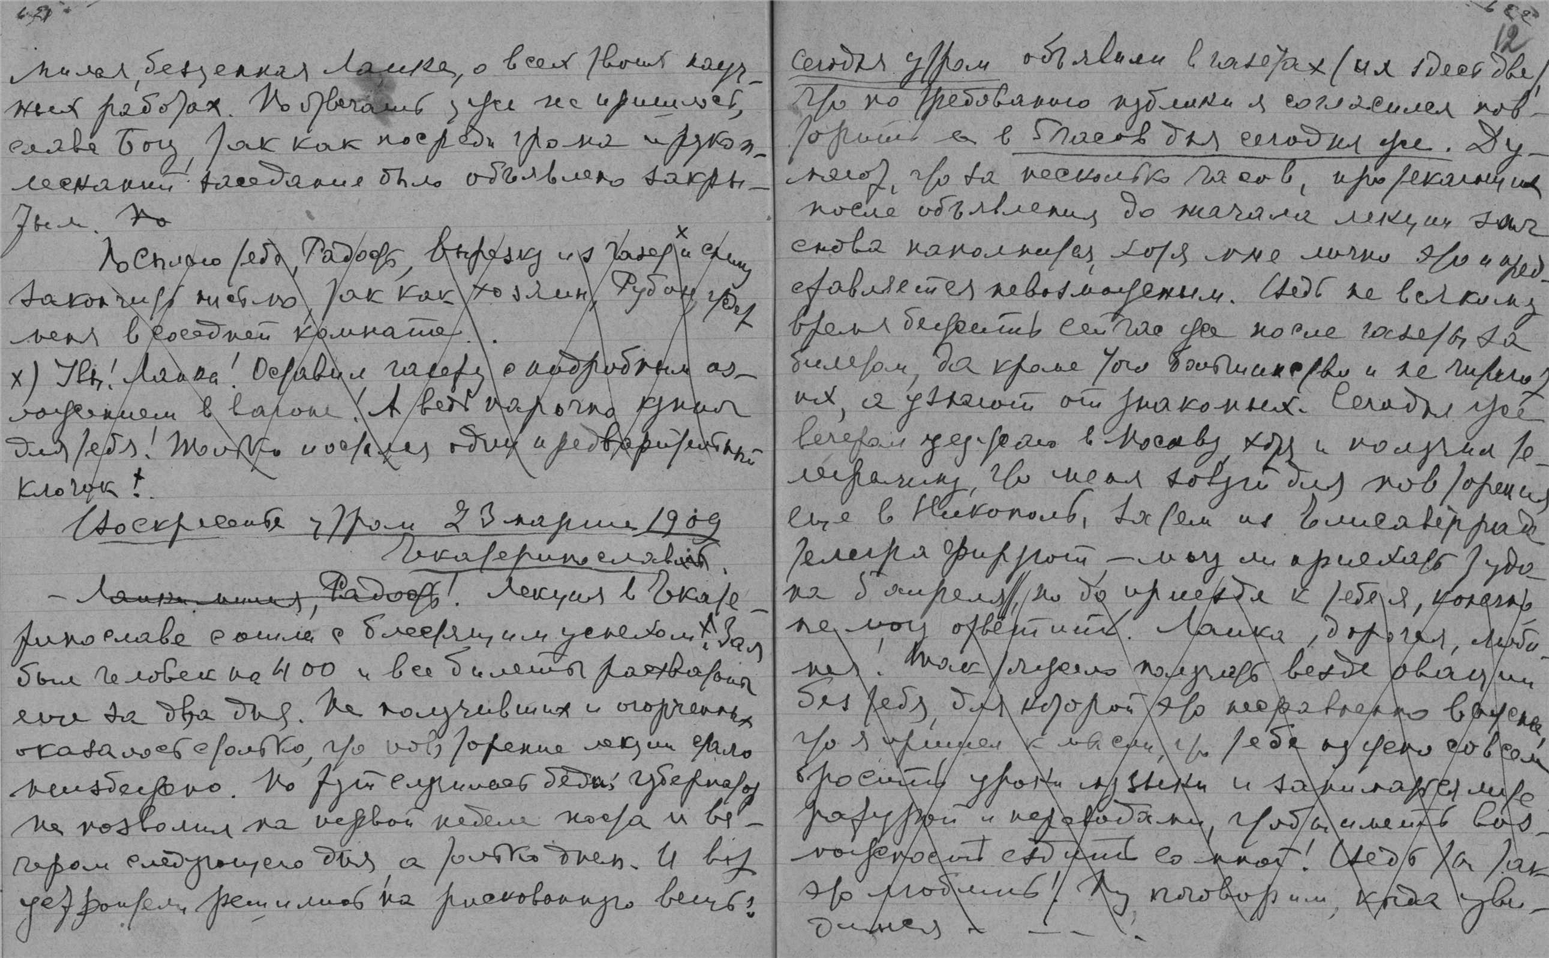 милая, бесценная Лапка, о всех твоих науч-
ных работах. Но отвечать уже не пришлось,
слава Богу, так как посреди грома и рукоп-
лесканий заседание было объявлено закры-
тым. Но
Посылаю тебе, Радость, вырезку из газеты х и спешу
закончить письмо так как хозяин, Рубин, ждет
меня в соседней комнате.
х) Увы! Лапка! Оставил газету с подробным из-
ложением в вагоне! А ведь нарочно купил
для тебя! Только остался один предварительный
клочок!
Воскресенье утром 23 марта 1909
Екатеринослав.
– Лапка милая, Радость! Лекция в Екате-
ринославе сошла с блестящим успехом! Зал
был человек на 400 и все билеты расхватаны
еще за два дня. Не получивших и огорченных
оказалось столько, что повторение лекции стало
неизбежно. Но тут случилась беда: губернатор
не позволил на первой неделе поста и ве-
чером следующего дня, а только днем. И вот
устроители решились на рискованную вещь:
12
сегодня утром объявили в газетах (их здесь две)
что по требованию публики я согласился пов-
торить ее в 6 часов дня сегодня же. Ду-
мают, что за несколько часов, протекающих
после объявления до начала лекции зал
снова наполнится, хотя мне лично это и пред-
ставляется невозможным. Ведь не всякому
время бежать сейчас же после газеты за
билетом, да кроме того большинство и не читают
их, а узнают от знакомых. Сегодня же
вечером уезжаю в Москву, хотя и получил те-
леграмму, что меня зовут для повторения
еще в Никополь, затем из Елисаветграда
телеграфируют – могу ли приехать туда
на 5 апреля, но до приезда к тебе я, конечно
не могу ответить. Лапка, дорогая, люби-
мая! Так тяжело получать везде овации
без тебя, для которой это несравненно важнее,
что я пришел к мысли, что тебе нужно совсем
бросить уроки музыки и заниматься лите-
ратурой и переводами, чтобы иметь воз-
можность ездить со мной! Ведь ты так
это любишь! Ну, поговорим, когда уви-
димся – – – .